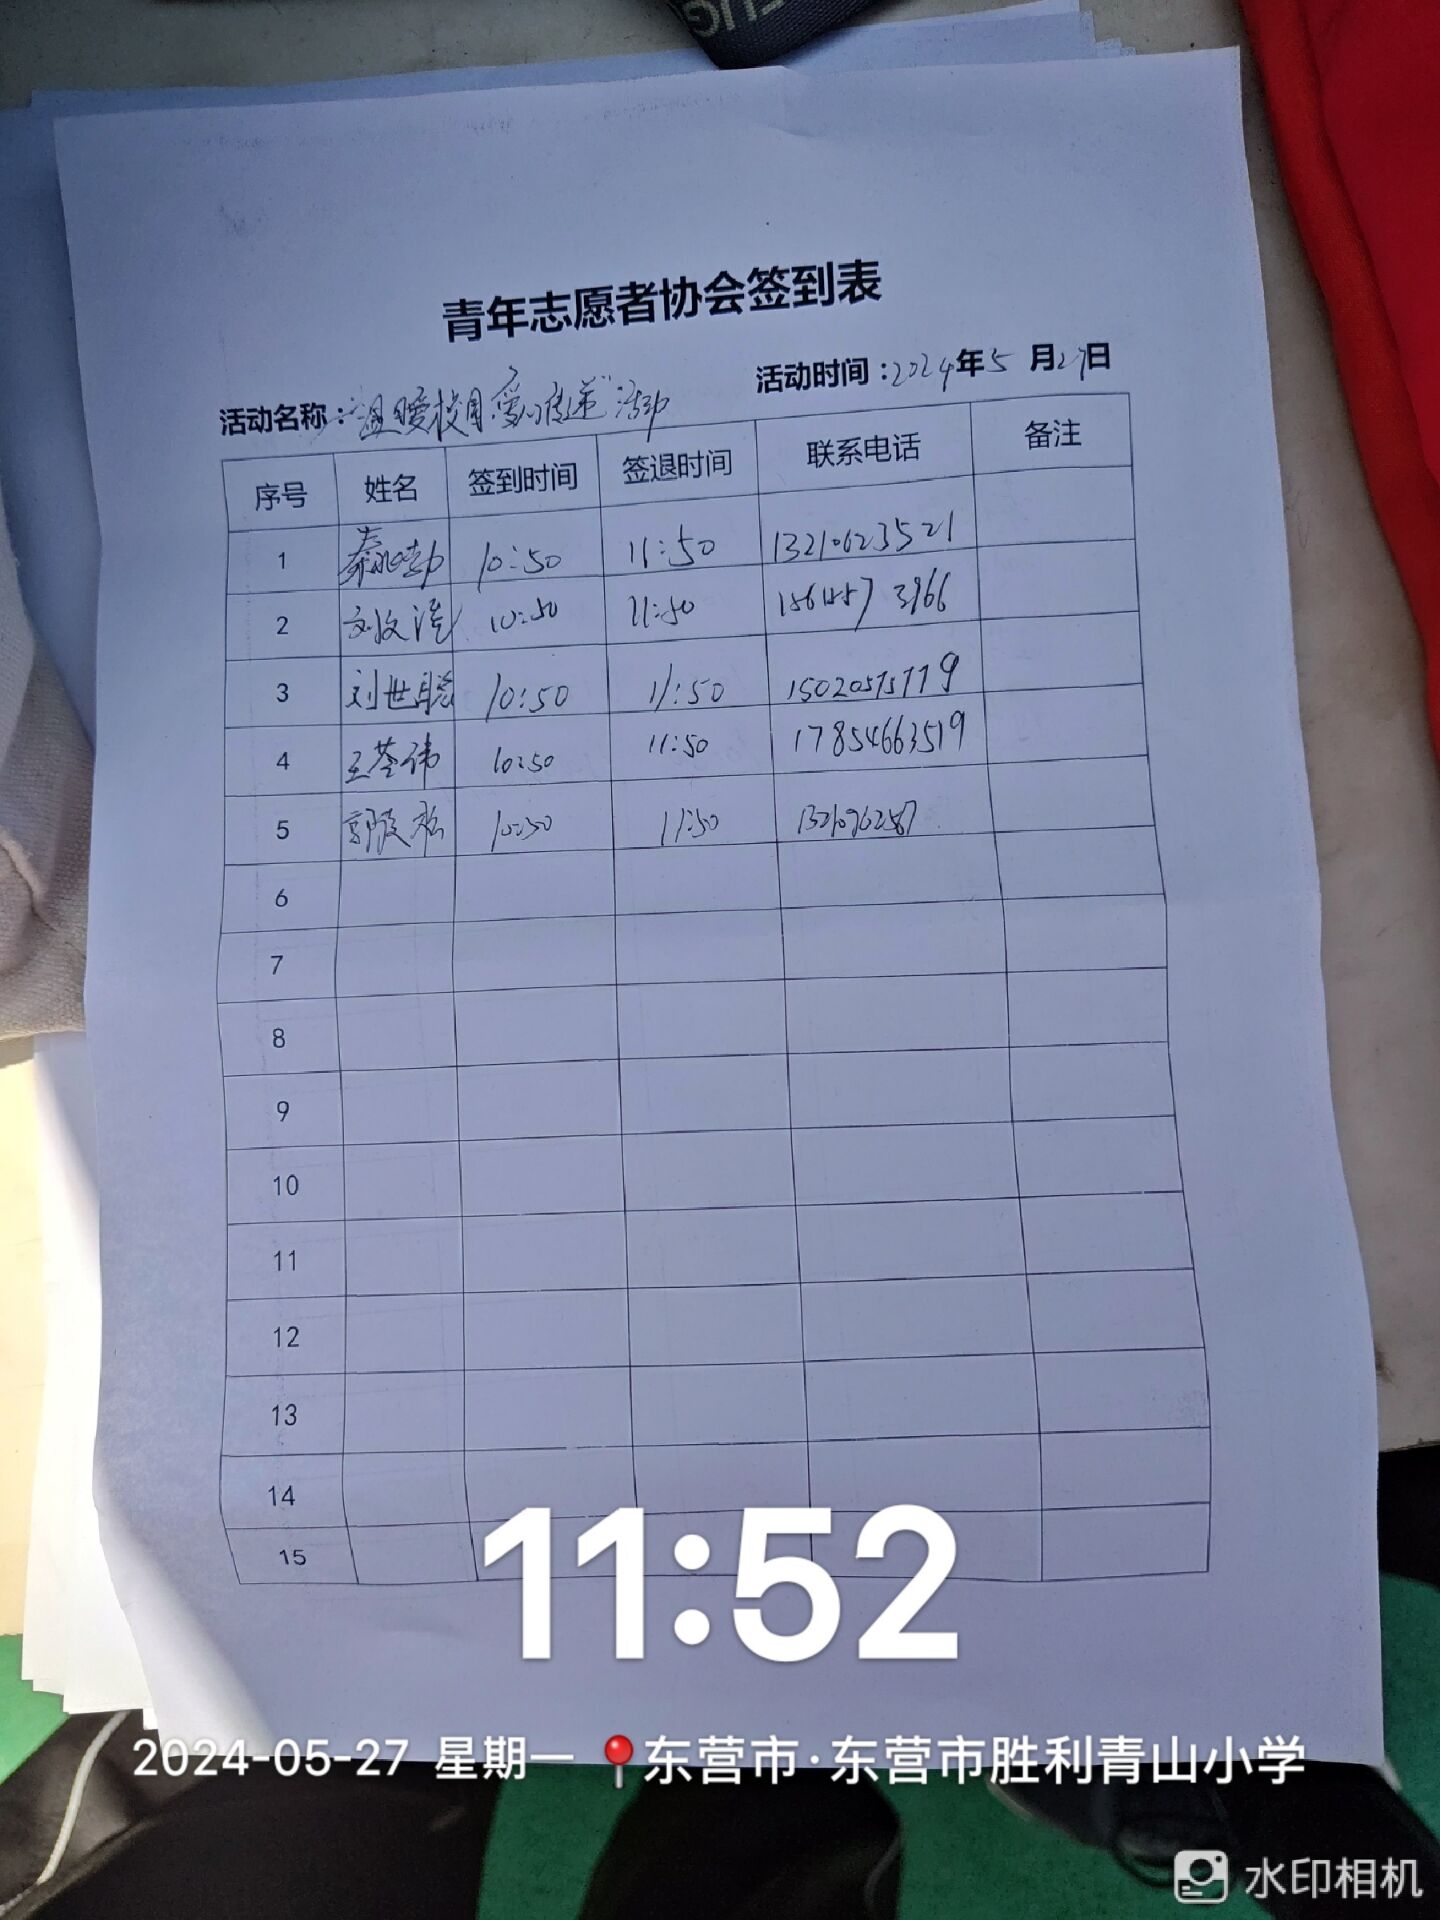 青年志愿者协会签到表
活动名称："温暖校园,爱心传递"活动 活动时间:2024年5月27日
序号 姓名 签到时间 签退时间 联系电话 备注
1 10:50 11:50 13210623521
2 刘文 10:50 11:50
3 刘世聪 10:50 11:50
4 王荟伟 10:50 11:50 17854663519
5 10:50 11:50
6
7
8
9
10
11
12
13
14
15
11:52
2024-05-27 星期一 东营市·东营市胜利青山小学
水印相机